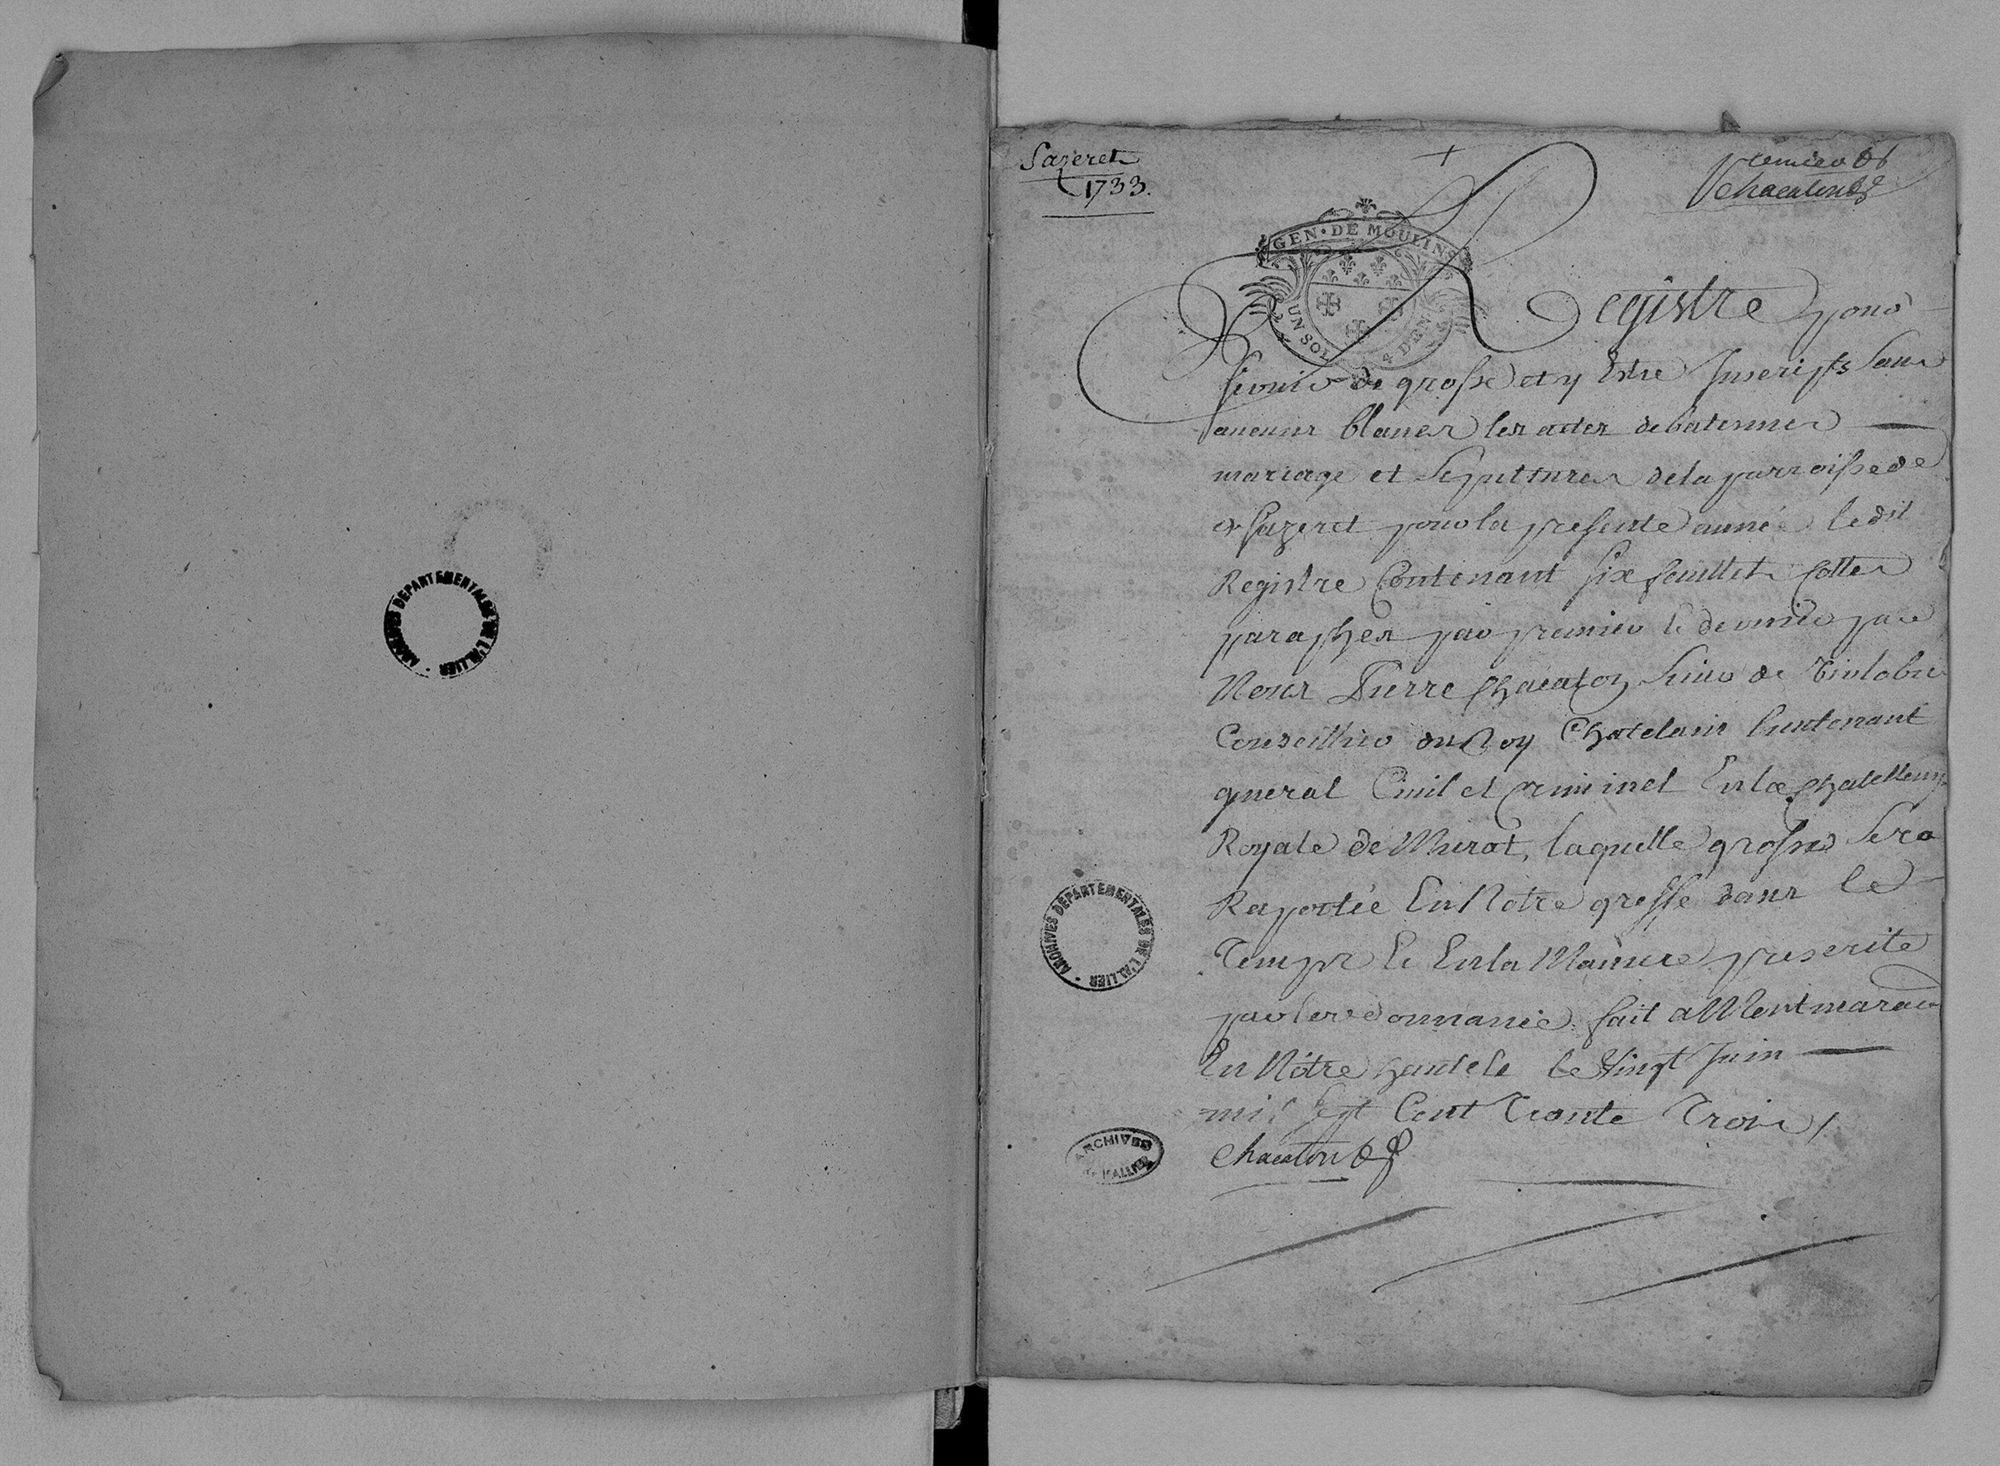 ARCHIVES DEPARTEMENTALES DE L'ALLIER
Sazeret
1733.
premier
Chacaton
GEN. DE MOULINS
UN SOL 4 DEN
Registre pour
servir de grosse et y Estre Inscripts Sans
aucuns blancs les actes de batesmes
mariage et Sepultures de la parroisse de
Sazeret pour la presente année le dit
Registre Contenant six feuillets Cottes
paraphes par premier le dernier par
Nous Pierre Chacaton Sieur de
Conseillier du Roy Chatelain Lieutenant
general Civil et Criminel En la Chatellenie
Royale de Murat, laquelle grosse Sera
Raportée En Notre greffe dans le
Temps Et En la Maniere prescrite
par fait a Montmaraud
En Nôtre hautele le Vingt Juin
mil Sept Cent Trante Trois
Chacaton
ARCHIVES DEPARTEMENTALES DE L'ALLIER
ARCHIVES
L'ALLIER